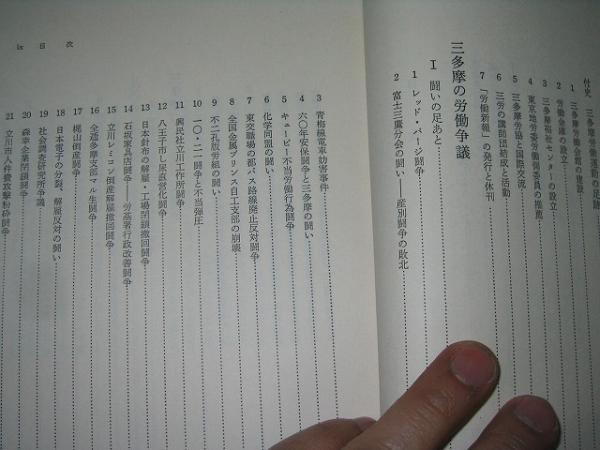 付史 三多摩労働運動の足跡
1 三多摩労働会館の建設
2 労働金庫の設立
3 三多摩福祉センターの設立
4 東京地労委労働側委員の推薦
5 三多摩労協と国際交流
6 三労の講師団結成と活動
7 「労働新報」の発行と休刊
三多摩の労働争議
I 闘いの足あと
1 レッド・パージ闘争
2 富士三鷹分会の闘い——産別闘争の敗北
ix 目次
3 青梅線電車妨害事件
4 六〇年安保闘争と三多摩の闘い
5 キューピー不当労働行為闘争
6 化学同盟の闘い
7 東交職場の都バス路線廃止反対闘争
8 全国金属プリンス自工支部の崩壊
9 不二孔版労組の闘い
10 一〇・二一闘争と不当弾圧
11 興民社立川工作所闘争
12 八王子市し尿直営化闘争
13 日本針布の解雇・工場閉鎖撤回闘争
14 石坂家具店闘争 労基署行政改善闘争
15 立川レミコン倒産解雇撤回闘争
16 全逓多摩支部マル生闘争
17 梶山倒産闘争
18 日本電子の分裂、解雇反対の闘い
19 社会調査研究所争議
20 森幸企業閉鎖闘争
21 立川市人件費攻撃粉砕闘争